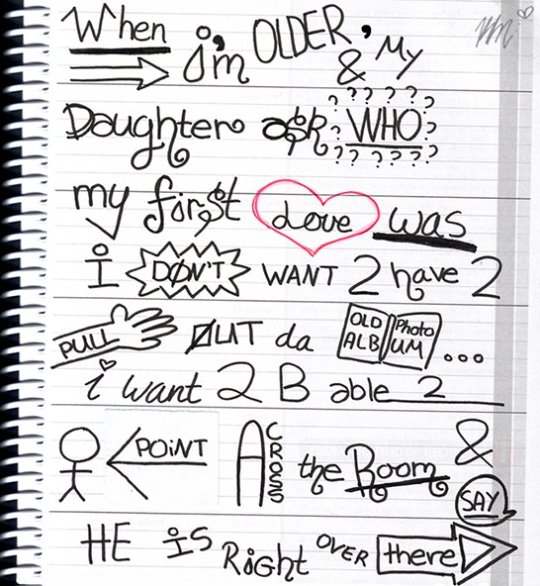 When i'm OLDER, & My
Daughter ask ????? WHO ? ? ? ? ?????
my first Love was
I DON'T WANT 2 have 2
PULL OUT da OLD Photo ALBUM...
i want 2 B able 2
POiNT ACROSS the Room &
HE iS Right OVER there SAY